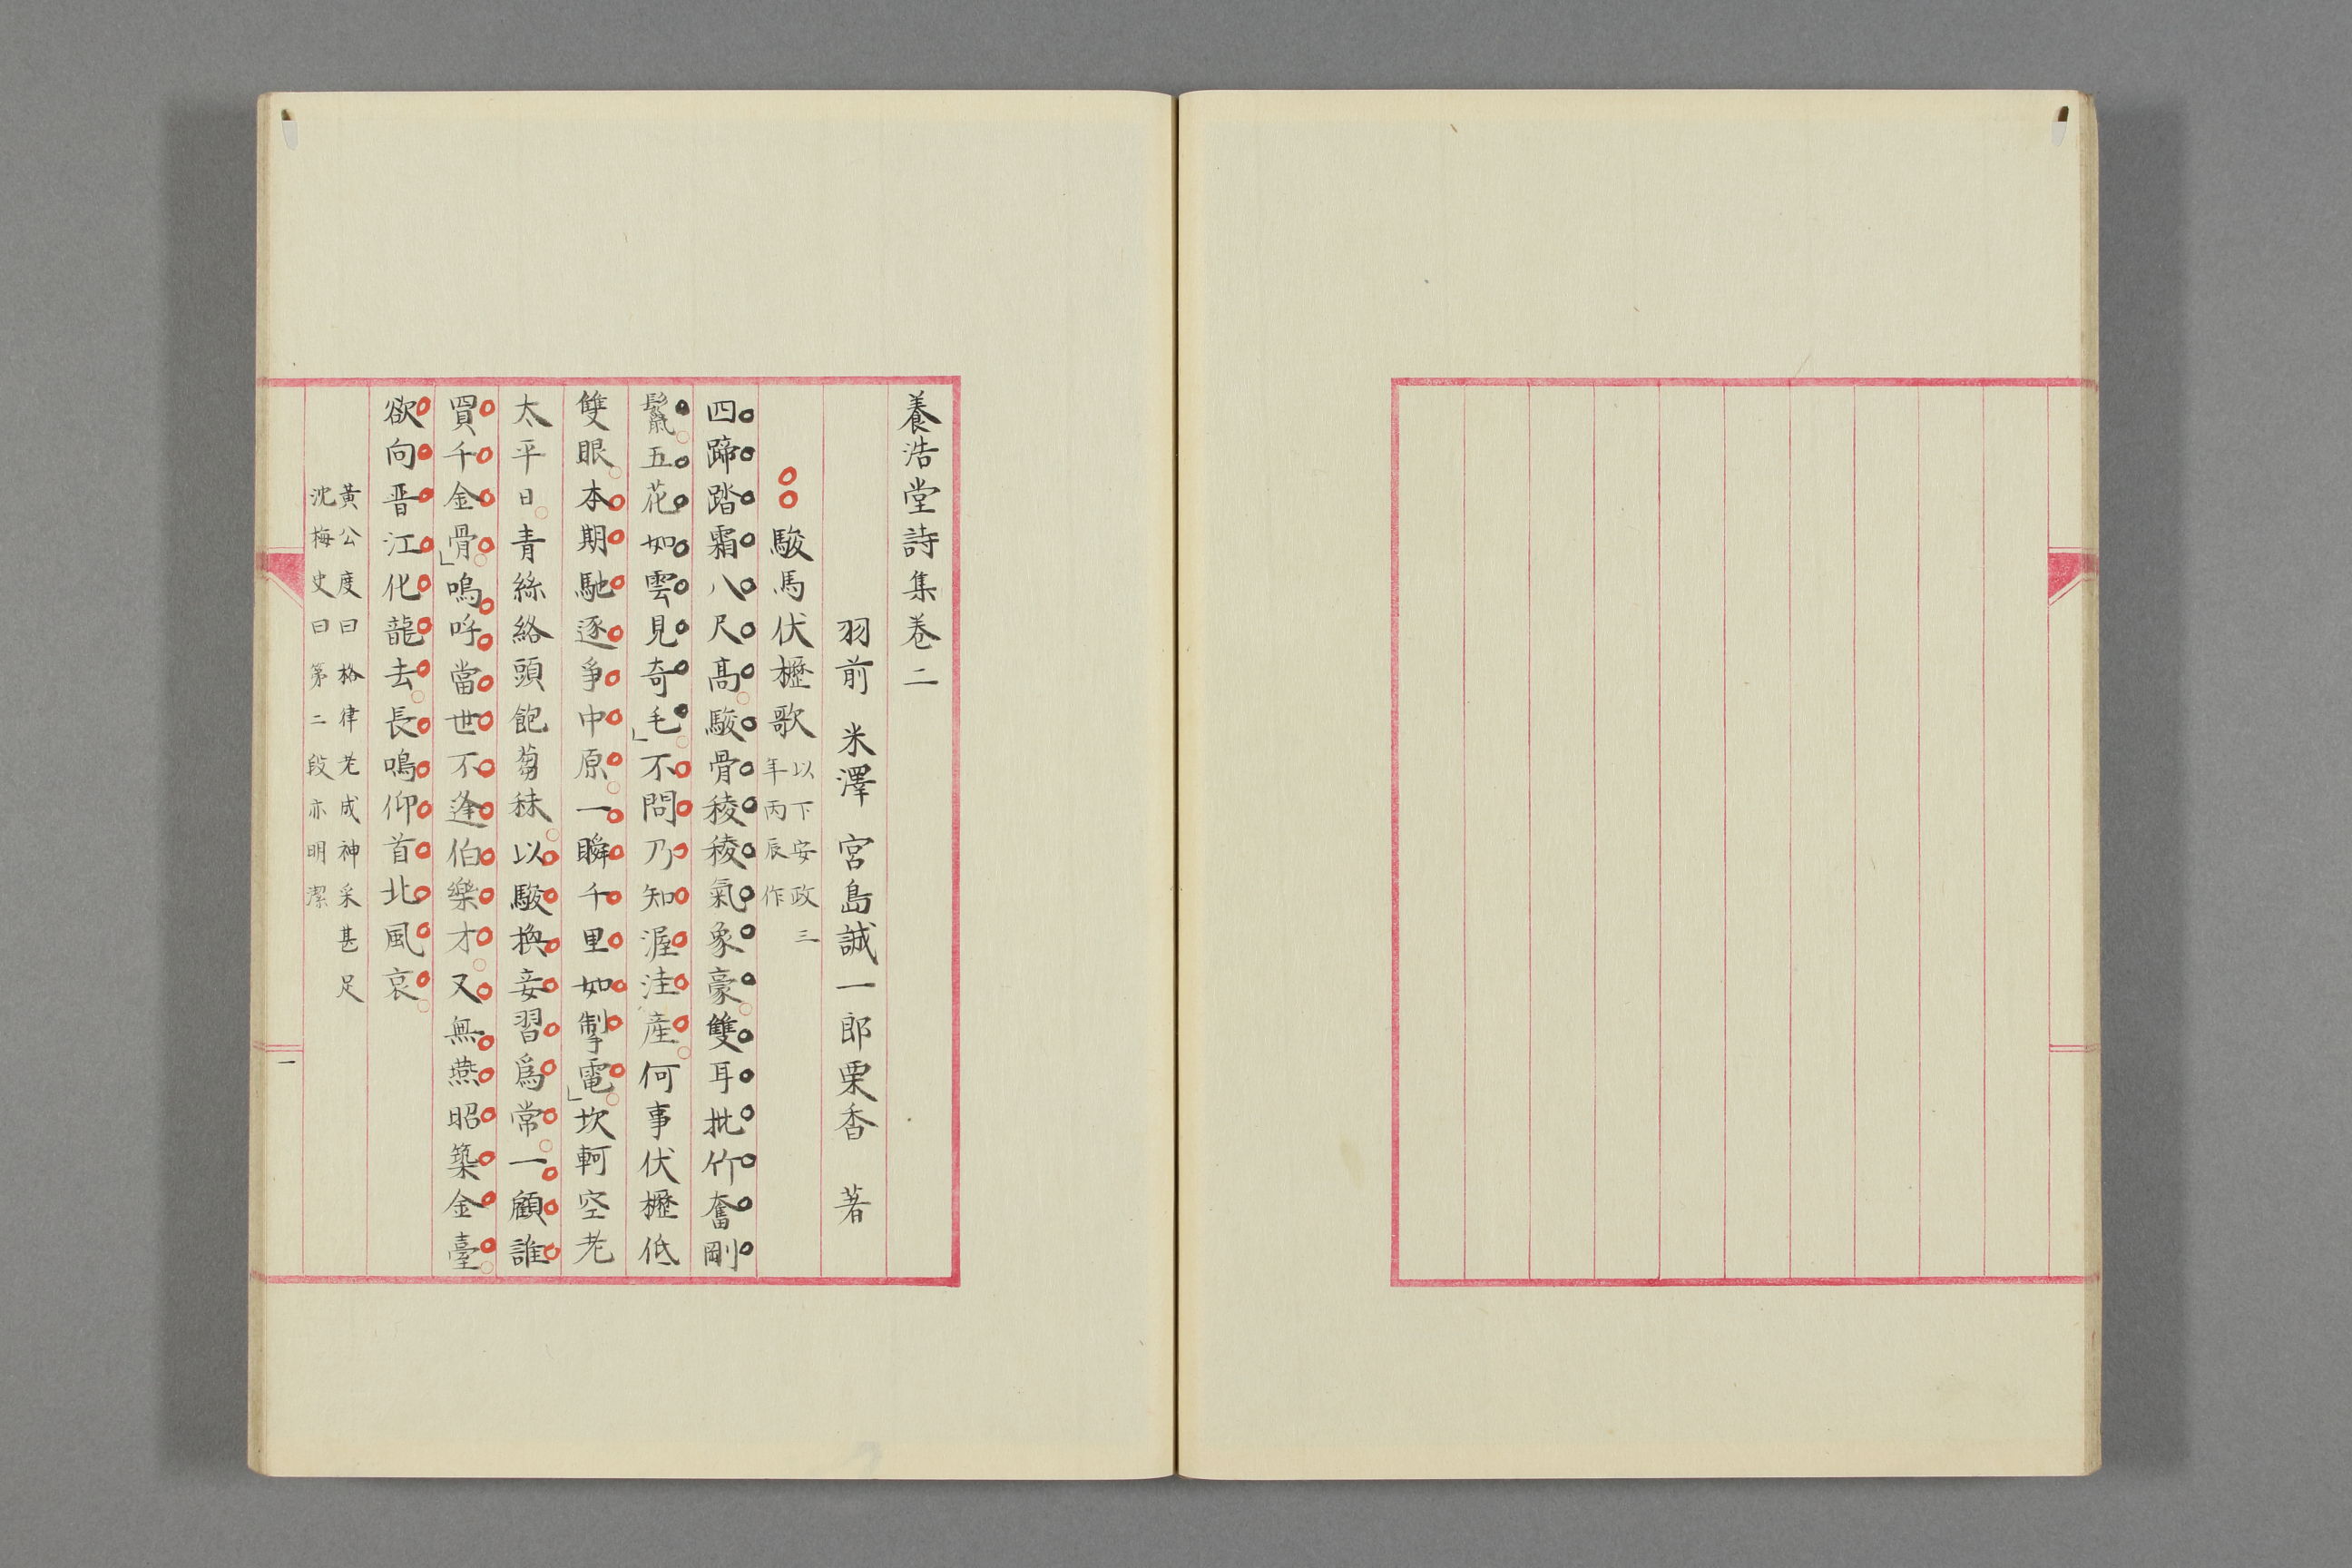 養浩堂詩集卷二
羽前 米澤 宮島誠一郎栗香 著
駿馬伏櫪歌 以下安政三年丙辰作
四蹄踏霜八尺高駿骨稜稜氣象豪雙耳批竹奮剛
鬣五花如雲見奇毛」不問乃知渥洼產何事伏櫪低
雙眼本期馳逐爭中原一瞬千里如掣電」坎軻空老
太平日青絲絡頭飽芻秣以駿換妾習爲常一顧誰
買千金骨」嗚呼當世不逢伯樂才又無燕昭築金臺
欲向晋江化龍去長鳴仰首北風哀
黃公度曰格律老成神采甚足
沈梅史曰第二段亦明潔
一